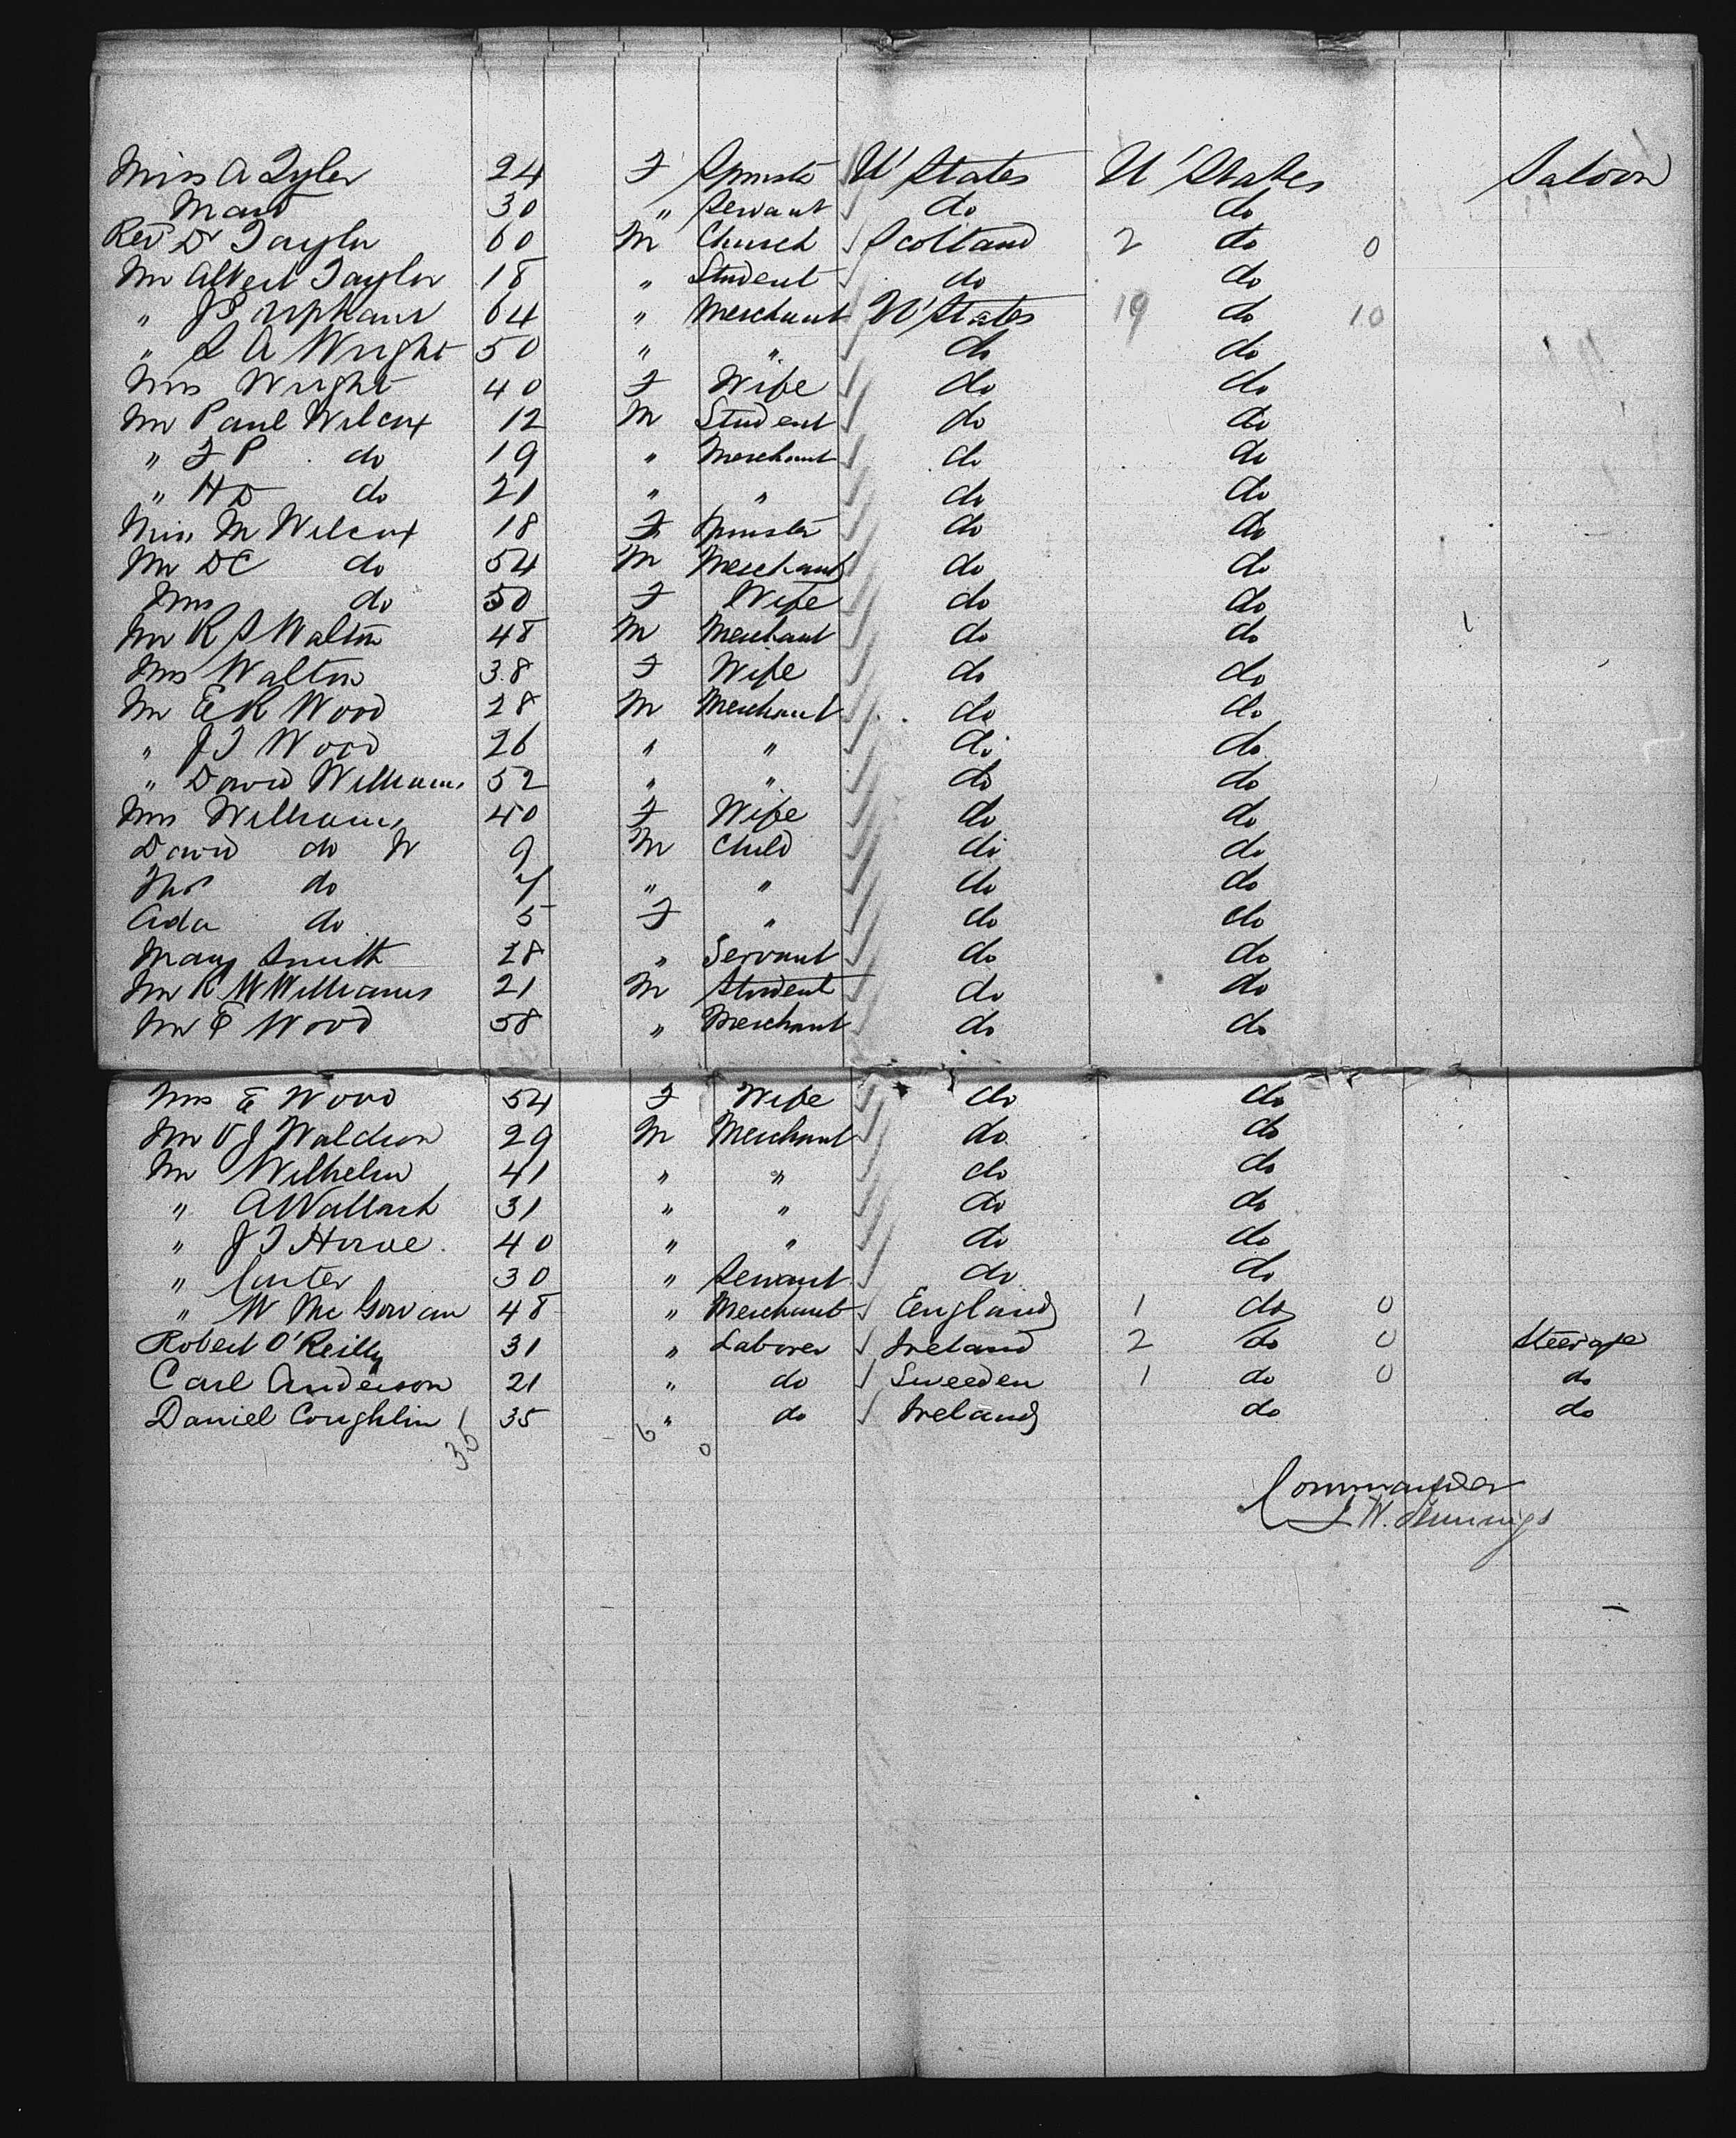 Miss A Tyler 24 F Spinster U States U States Saloon
Maid 30 " Servant do do
Rev Dr Taylor 60 M Church Scotland 2 do 0
Mr Albert Taylor 18 " Student do do
" J S 64 " Merchant U States 19 do 10
" L A Wright 50 " " do do
Mrs Wright 40 F Wife do do
Mr Paul Wilcox 12 M Student do do
" F P do 19 " Merchant do do
" H D do 21 " " do do
Miss M Wilcox 18 F Spinster do do
Mr D C do 54 M Merchant do do
Mrs do 50 F Wife do do
Mr R S Walton 48 M Merchant do do
Mrs Walton 38 F Wife do do
Mr E R Wood 28 M Merchant do do
" J T Wood 26 " " do do
" David Williams 52 " " do do
Mrs Williams 40 F Wife do do
David do 9 M Child do do
Thos do 7 " " do do
Ada do 5 F " do do
Mary Smith 28 " Servant do do
Mr R W Williams 21 M Student do do
Mr E Wood 58 " Merchant do do
Mrs E Wood 54 F Wife do do
Mr V J Waldron 29 M Merchant do do
Mr Wilhelm 41 " " do do
" A Wallach 31 " " do do
" J T Howe 40 " " do do
" Carter 30 " Servant do do
" W McGowan 48 " Merchant England 1 do 0
Robert O'Reilly 31 " Laborer Ireland 2 do 0 Steerage
Carl Anderson 21 " do Sweeden 1 do 0 do
Daniel Coughlin 35 " do Ireland do do
35 6 0
Commander
W. Jennings